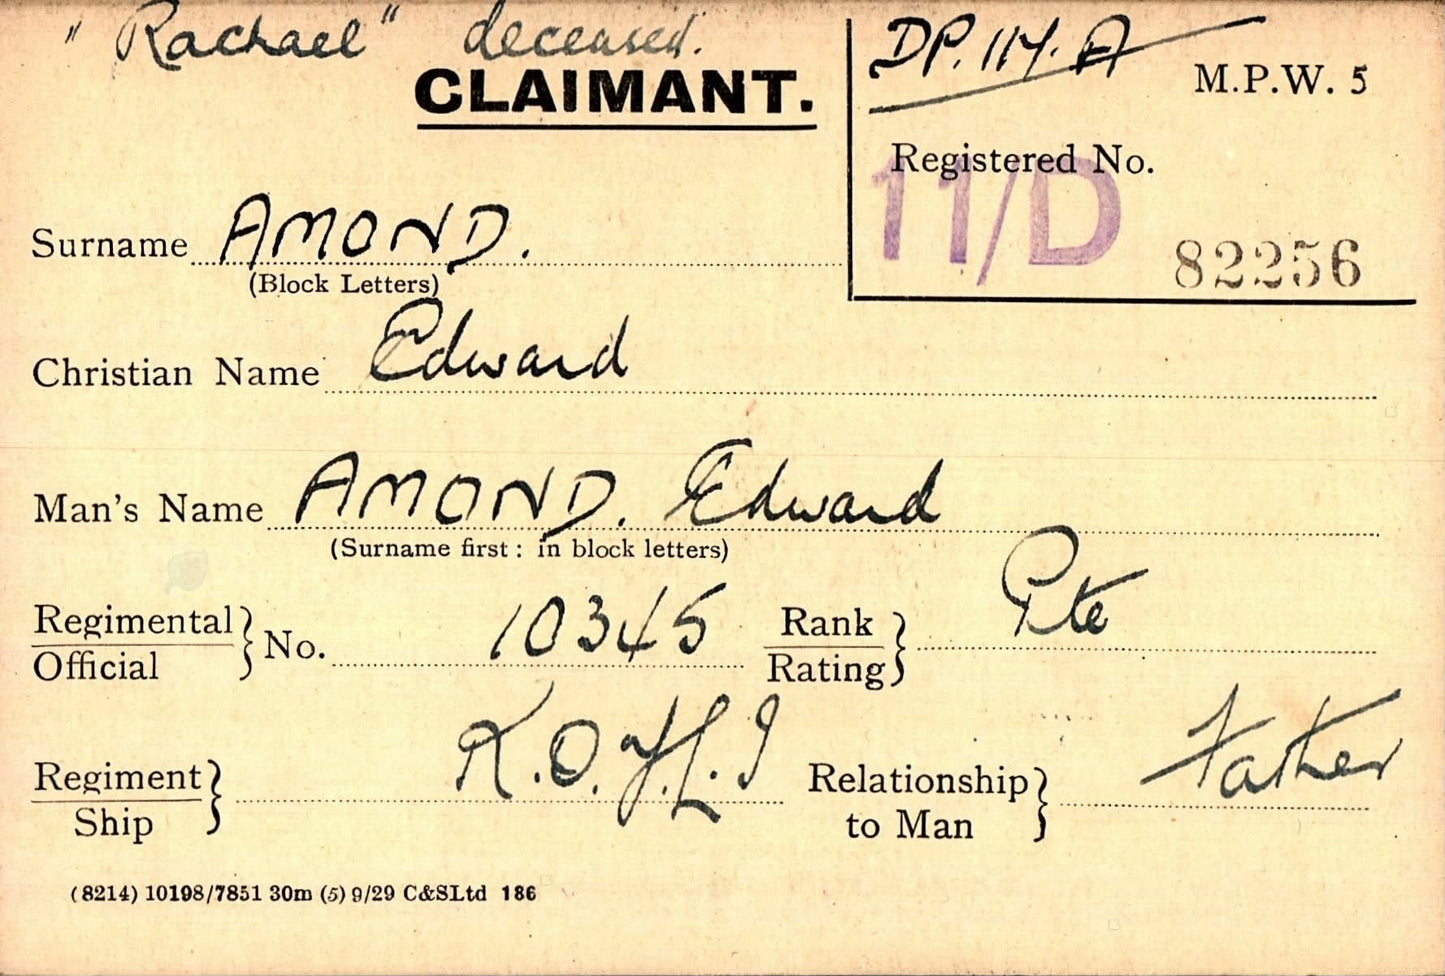 "Rachael" deceased.
CLAIMANT.
DP. 114. A
M.P.W. 5
Registered No.
11/D
82256
Surname AMOND.
(Block Letters)
Christian Name Edward
Man's Name AMOND. Edward
(Surname first: in block letters)
Regimental
Official } No. 10345 Rank
Rating } Pte
Regiment
Ship } K.O.Y.L.I Relationship
to Man } Father
(8214) 10198/7851 30m (5) 9/29 C&SLtd 186